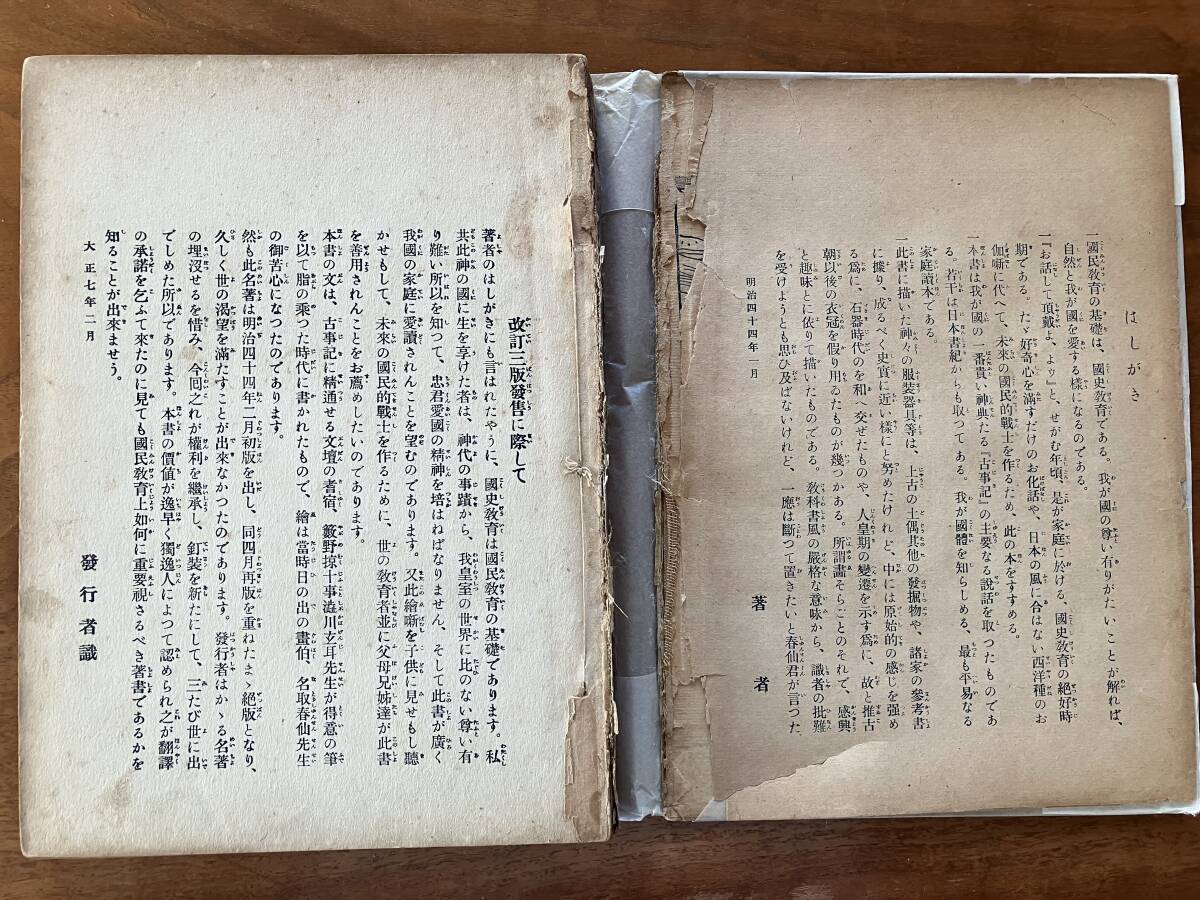 はしがき
一國民敎育の基礎は、國史敎育である。我が國の尊い有りがたいことが解れば、
自然と我が國を愛する樣になるのである。
一『お話して頂戴よ、よウ』と、せがむ年頃、是が家庭に於ける、國史敎育の絶好時
期である。たゞ好奇心を滿すだけのお化話や、日本の風に合はない西洋種のお
伽噺に代へて、未來の國民的戰士を作るため、此の本をすすめる。
一本書は我が國の一番貴い神典たる『古事記』の主要なる說話を取つたものであ
る。若干は日本書紀からも取つてある。我が國體を知らしめる、最も平易なる
家庭讀本である
一此書に描いた神々の服裝器具等は、上古の土偶其他の發掘物や、諸家の參考書
に據り、成るべく史實に近い樣にと努めたけれど、中には原始的の感じを强め
る爲に、石器時代のを和へ交ぜたものや、人皇期の變遷を示す爲に、故と推古
朝以後の衣冠を假り用ゐたものが幾つかある。所謂畫そらごとのそれで、感興
と趣味とに依りて描いたものである。敎科書風の嚴格な意味から、識者の批難
を受けようとも思ひ及ばないけれど、一應は斷つて置きたいと春仙君が言つた
明治四十四年一月
著者
改訂三版發售に際して
著者のはしがきにも言はれたやうに、國史敎育は國民敎育の基礎であります。私
共此神の國に生を享けた者は、神代の事蹟から、我皇室の世界に比のない尊い有
り難い所以を知つて、忠君愛國の精神を培はねばなりません、そして此書が廣く
我國の家庭に愛讀されんことを望むのであります。又此繪噺を子供に見せもし聽
かせもして、未來の國民的戰士を作るために、世の敎育者並に父母兄姊達が此書
を善用されんことをお薦めしたいのであります。
本書の文は、古事記に精通せる文壇の耆宿、籔野椋十事澁川玄耳先生が得意の筆
を以て脂の乘つた時代に書かれたもので、繪は當時日の出の畫伯、名取春仙先生
の御苦心になつたのであります。
然も此名著は明治四十四年二月初版を出し、同四月再版を重ねたまゝ絶版となり、
久しく世の渴望を滿たすことが出來なかつたのであります。發行者はかゝる名著
の埋沒せるを惜み、今囘之れが權利を繼承し、釘裝を新たにして、三たび世に出
でしめた所以であります。本書の價値が逸早く獨逸人によつて認められ之が翻譯
の承諾を乞ふて來たのに見ても國民敎育上如何に重要視さるべき著書であるかを
知ることが出來ませう。
大正七年二月
發行者識